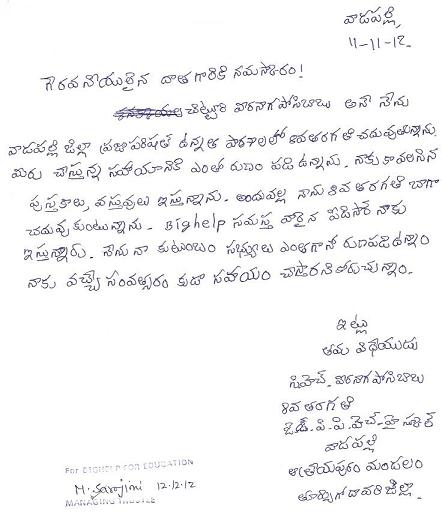 వాడపల్లి
11-11-12.
గౌరవనీయులైన దాతగారికి నమస్కారం!
చిట్టూరి వీరనాగపోసిబాబు అనే నేను
వాడపల్లి జిల్లా ప్రజాపరిషత్ ఉన్నత పాఠశాలలో 8వ తరగతి చదువుతున్నాను.
మీరు చేస్తున్న సహాయానికి ఎంతో రుణం పడి ఉన్నాను. నాకు కావలసిన
పుస్తకాలు, వస్తువులు ఇస్తున్నారు. అందువల్ల నాను 8వ తరగతి బాగా
చదువుకుంటున్నాను. BigHelp సమస్త వారైన మీరే నాకు
ఇస్తున్నారు. నేను నా కుటుంబం సభ్యులు ఎంతగానో రుణపడి ఉన్నాం
నాకు వచ్చే సంవత్సరం కుడా సహాయం చేస్తారని కోరుచున్నాం.
ఇట్లు
తమ విధేయుడు
సిహెచ్. వీరనాగపోసిబాబు
8వ తరగతి
జెడ్.పి.పి.హెచ్-హై స్కూల్
వాడపల్లి
ఆత్రేయపురం మండలం
తూర్పుగోదావరి జిల్లా.
For BIGHELP FOR EDUCATION
M. Sarojini 12.12.12
MANAGING TRUSTEE